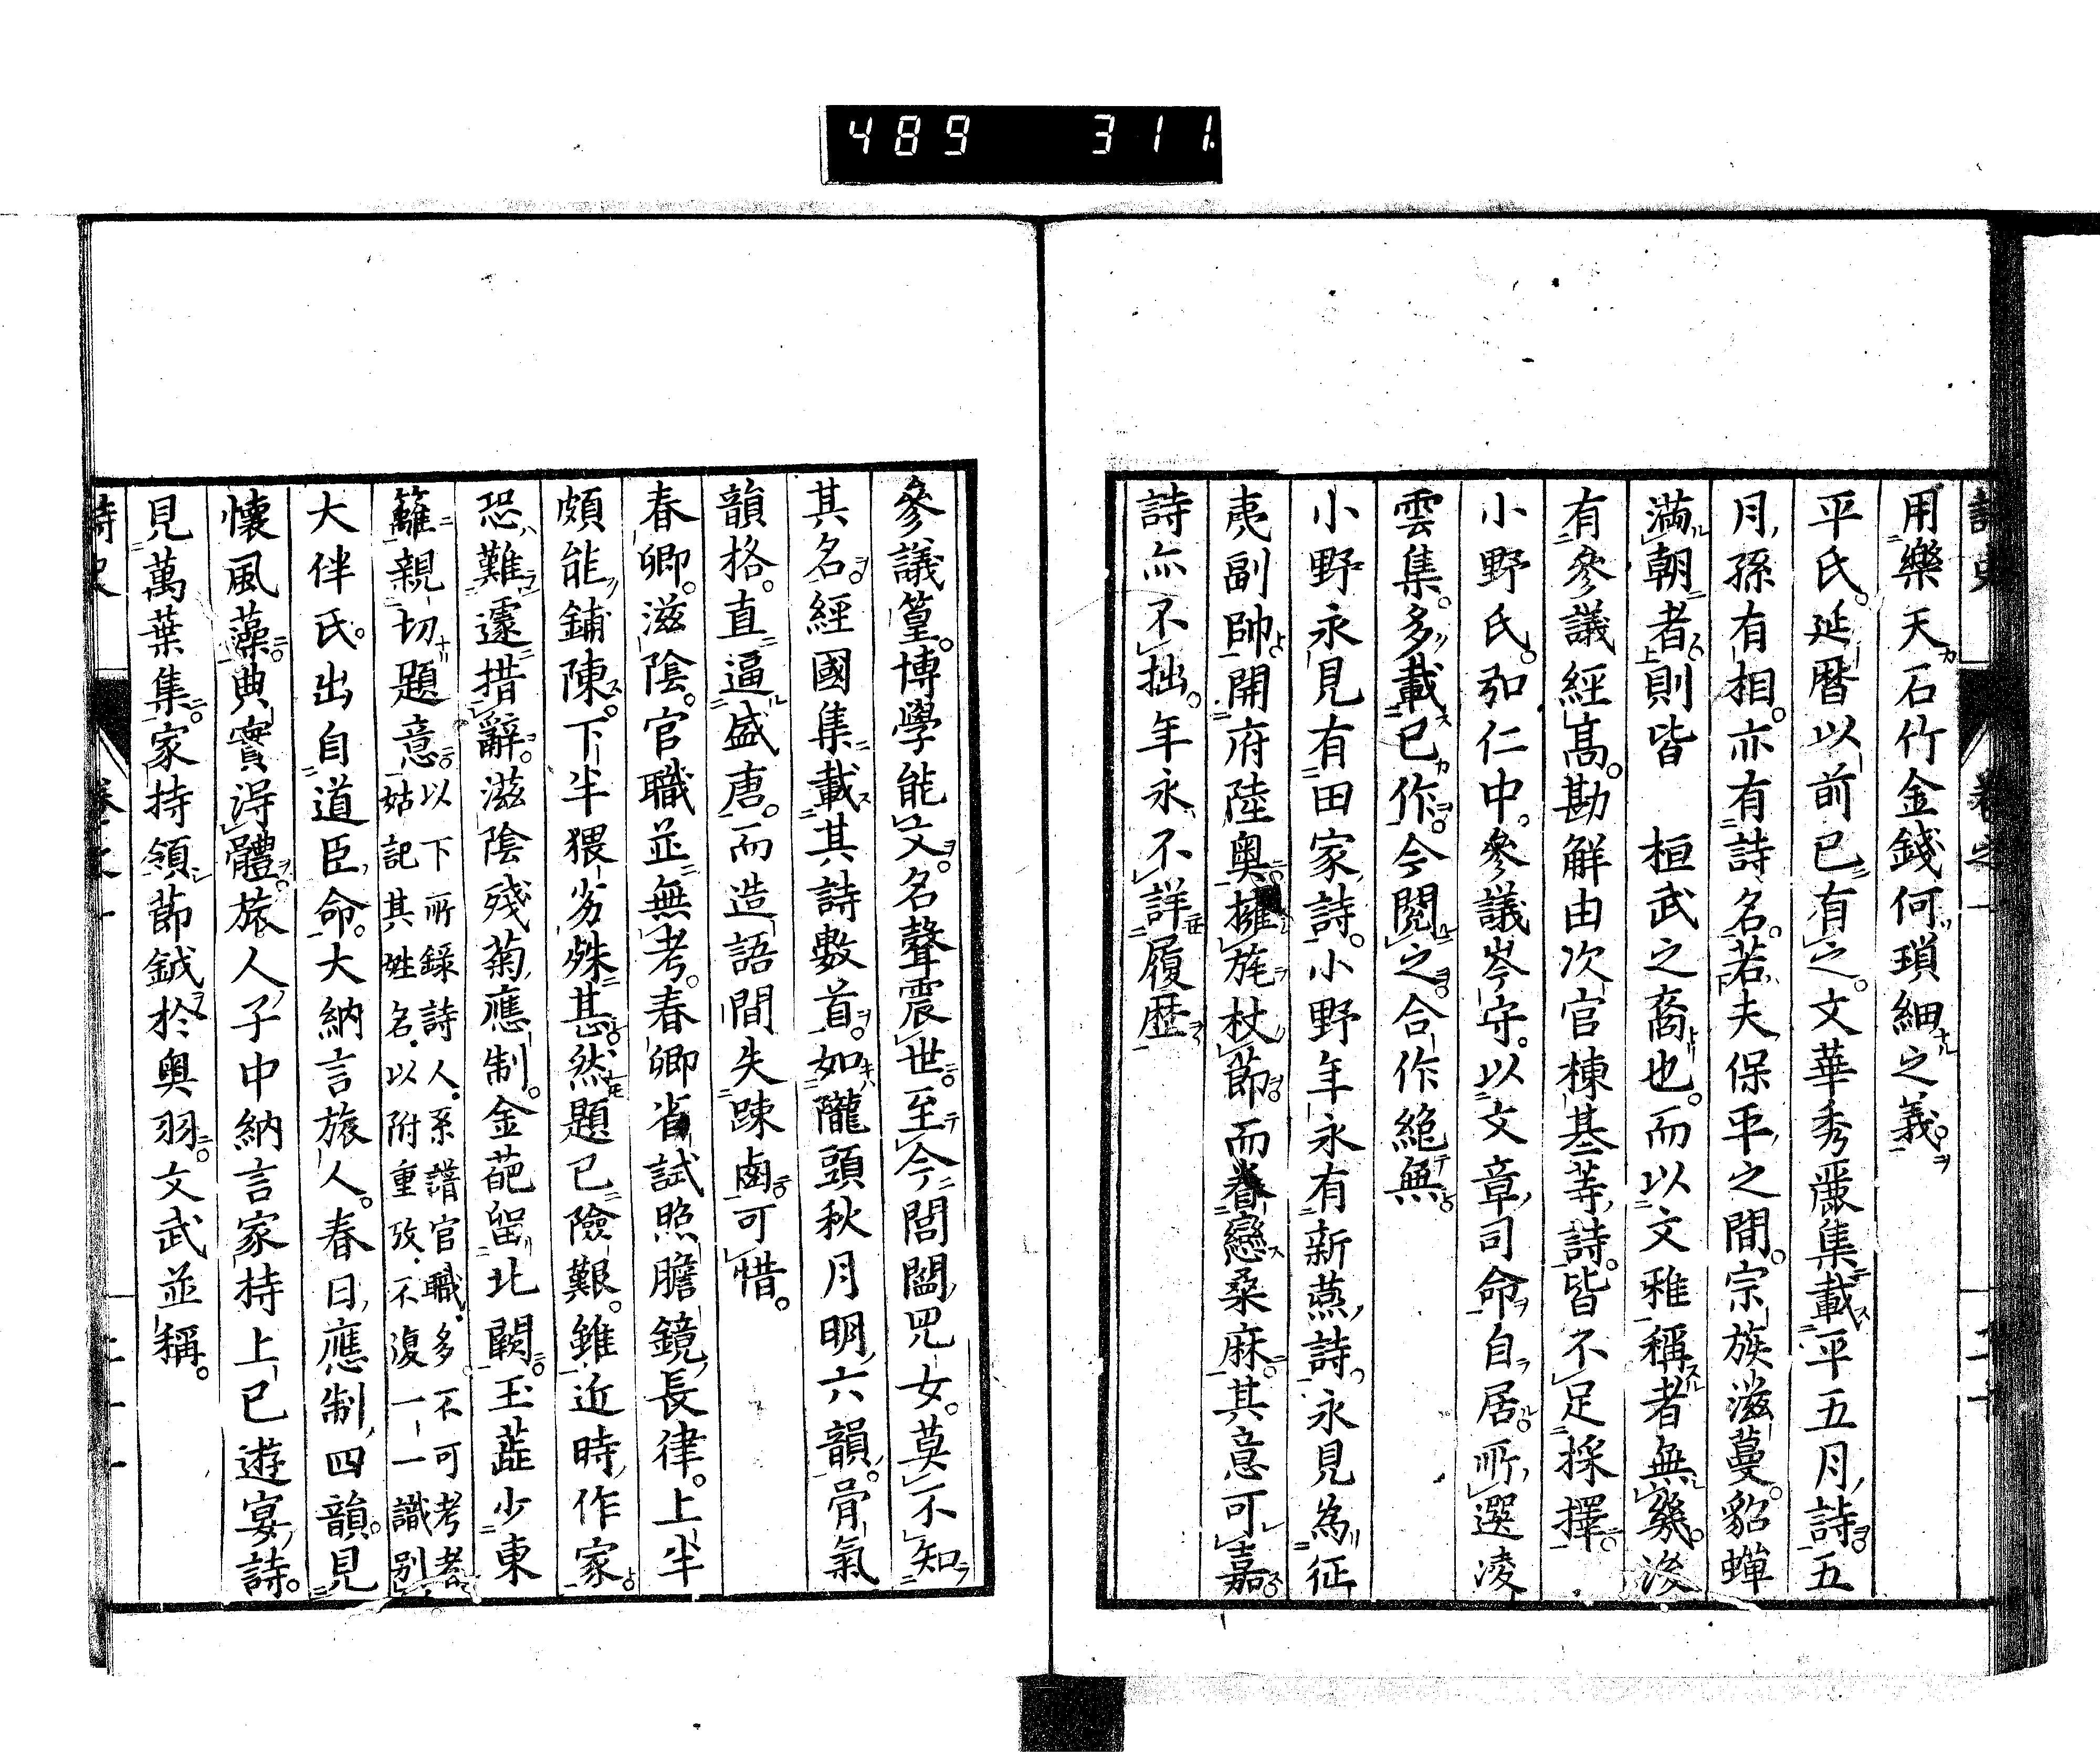 489 311
用樂天石竹金錢何瑣細之義
平氏。延暦以前已有之。文華秀麗集載平五月詩。五
月孫有相。亦有詩名。若夫保平之間。宗族滋蔓。貂蟬
満朝者則皆 桓武之裔也。而以文雅稱者無幾。後
有參議經高。勘解由次官棟基等詩。皆不足採擇。
小野氏。弘仁中。參議岑守。以文章司命自居。所選凌
雲集。多載已作。今閲之。合作絶無。
小野永見有田家詩。小野年永有新燕詩。永見為征
夷副帥。開府陸奥。擁旄杖節。而眷戀桑麻。其意可嘉
詩亦不拙。年永不詳履歴
參議篁。博學能文。名聲震世。至今閭閻児女。莫不知
其名。經國集載其詩數首。如隴頭秋月明六韻。骨氣
韻格。直逼盛唐。而造語間失踈鹵。可惜。
春卿。滋陰。官職並無考。春卿省試照膽鏡長律。上半
頗能鋪陳。下半猥劣殊甚。然題已險艱。雖近時作家。
恐難遽措辭。滋陰殘菊應制。金葩留北闕。玉蕋少東
籬。親切題意。以下所錄詩人。系譜官職。多不可考者
姑記其姓名。以附重攷。不復一一識別
大伴氏。出自道臣命。大納言旅人。春日應制四韻。見
懷風藻。典實得體。旅人子中納言家持上巳遊宴詩。
見萬葉集。家持領節鉞於奥羽。文武並稱。